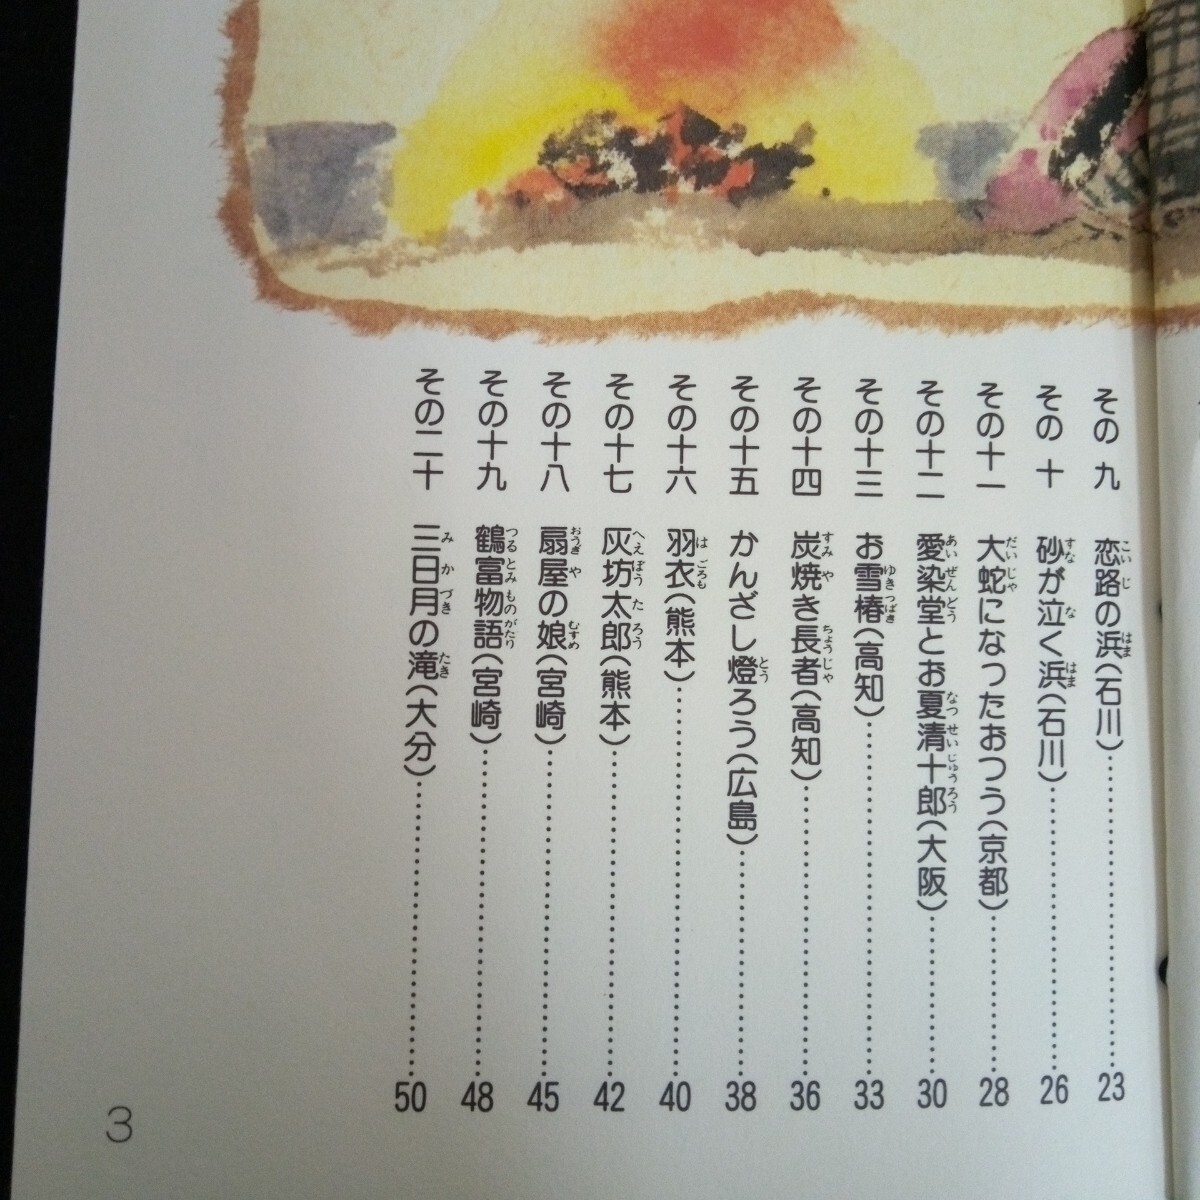 その九 恋路の浜(石川)……………23
その十 砂が泣く浜(石川)……………26
その十一 大蛇になったおつう(京都)……………28
その十二 愛染堂とお夏清十郎(大阪)……………30
その十三 お雪椿(高知)……………33
その十四 炭焼き長者(高知)……………36
その十五 かんざし燈ろう(広島)……………38
その十六 羽衣(熊本)……………40
その十七 灰坊太郎(熊本)……………42
その十八 扇屋の娘(宮崎)……………45
その十九 鶴富物語(宮崎)……………48
その二十 三日月の滝(大分)……………50
3